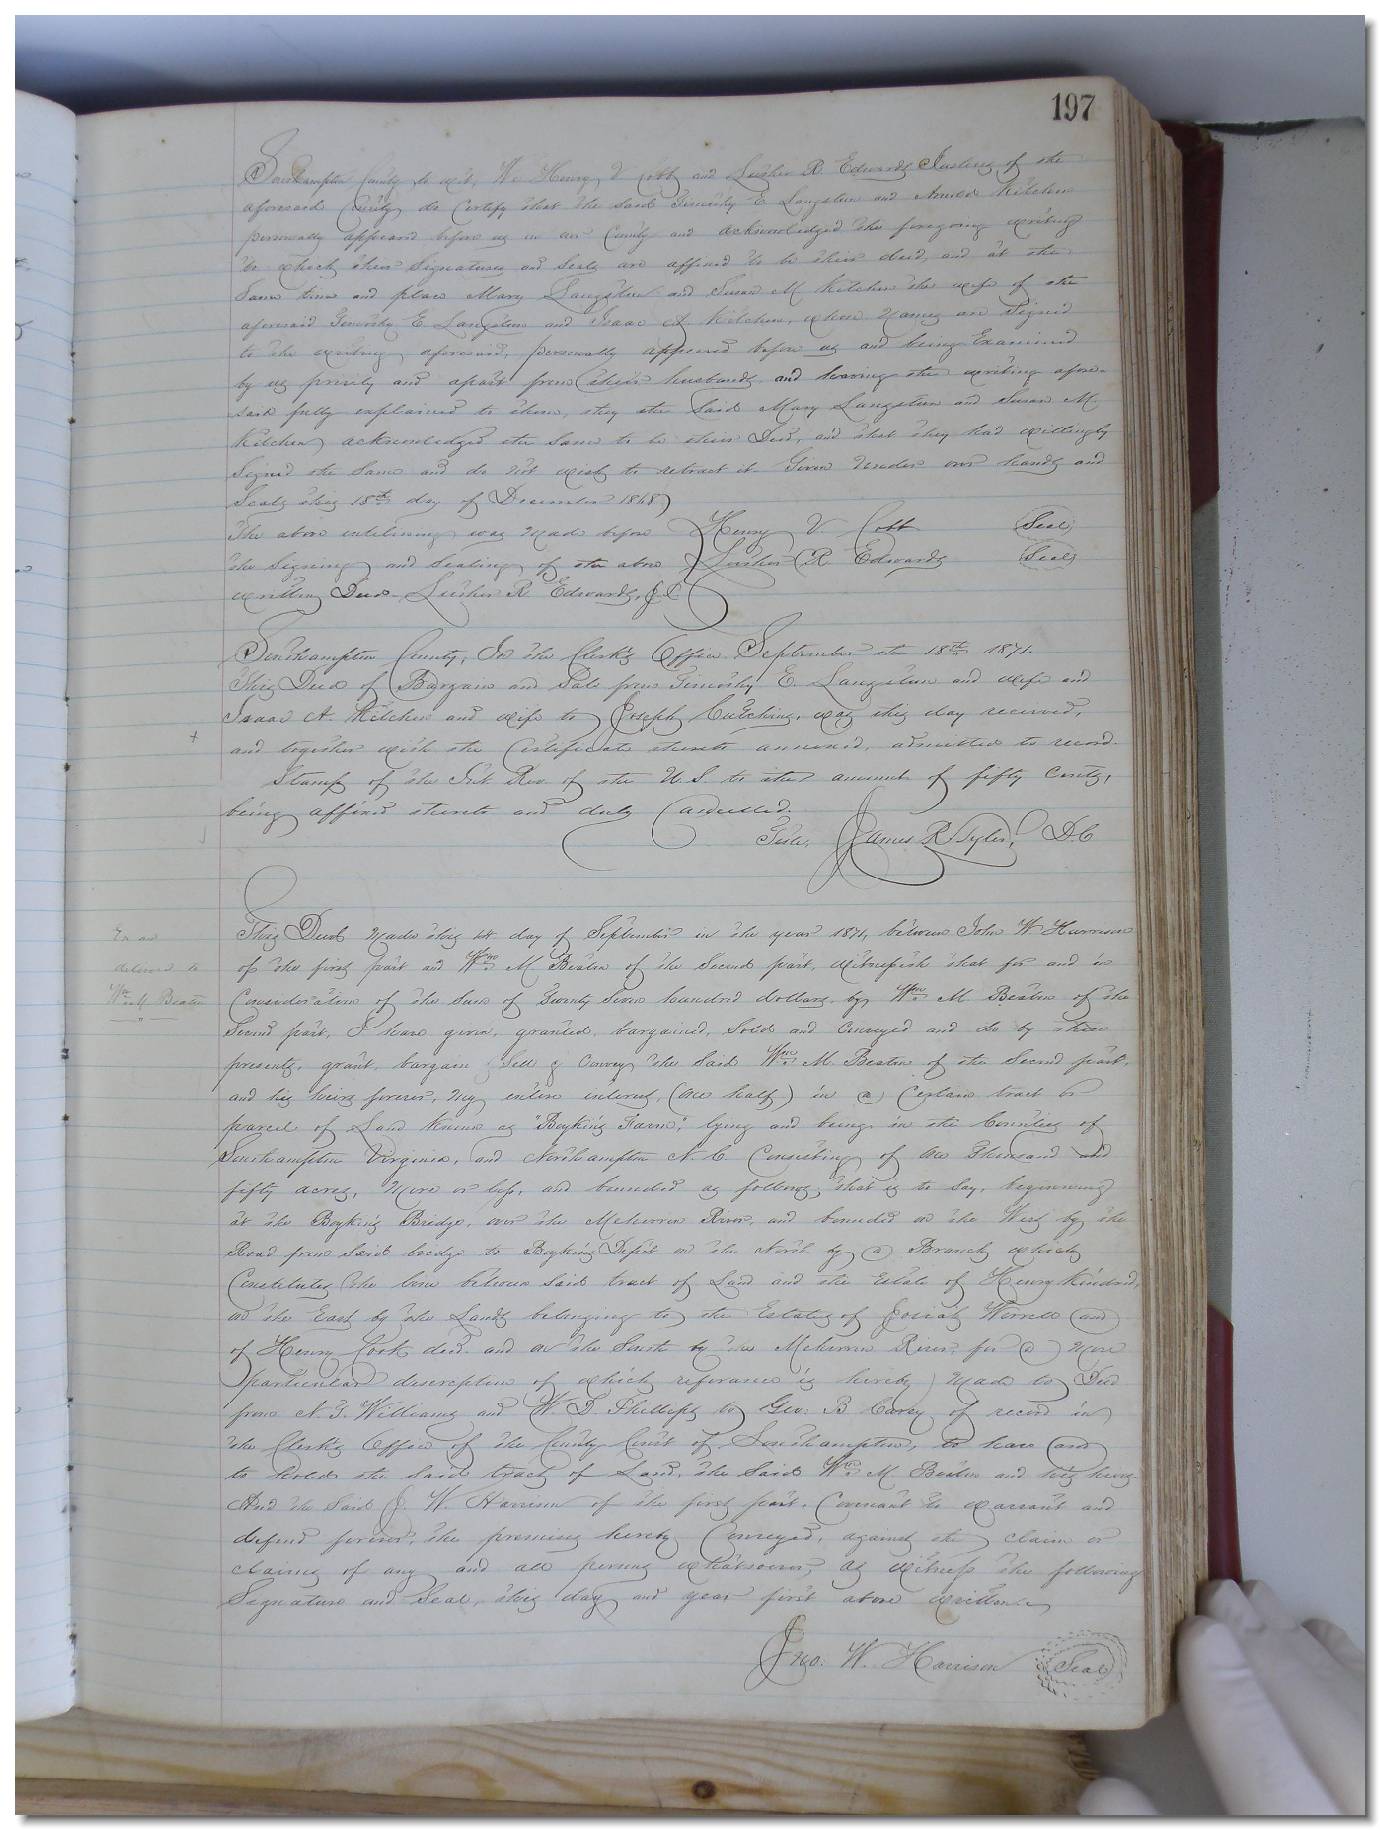 197
Southampton County to wit, We Henry V Cobb and Lusher R. Edwards Justices of the
aforesaid County do Certify that the said Timothy E Langston and Kitchen
personally appeared before us in our County and acknowledged the foregoing writing
to which their Signatures and Seals are affixed to be their deed, and at the
Same time and place Mary Langston and Susan M Kitchen the wife of the
aforesaid Timothy E Langston and Isaac A. Kitchen, whose Names are Signed
to the writing aforesaid, personally appeared before us and being Examined
by us privily and apart from their husbands and having the writing afore-
said fully explained to them, they the Said Mary Langston and Susan M.
Kitchen acknowledged the same to be their Deed, and that they had willingly
Signed the Same and do Not wish to retract it Given Under our hands and
Seals this 18th day of December 1868
The above interlining was Made before Henry V. Cobb Seal
the Signing and Sealing of the above Lusher R Edwards Seal
written Deed Lusher R Edwards, J.P.
Southampton County, In the Clerk's Office September the 18th 1871.
This Deed of Bargain and Sale from Timothy E. Langston and wife and
Isaac A. Kitchen and wife to Joseph Hutchings, was this day received,
+
and together with the Certificate thereto annexed, admitted to record.
Stamp of the Int. Rev. of the U.S. to the amount of fifty Cents,
being affixed thereto and duly Cancelled.
Teste, James R. Tyler, D.C
This Deed Made this 1st day of September in the year 1871, between John W Harrison
Ex and
of the first part and Wm M Beaton of the Second part, witnesseth that for and in
delivered to
Consideration of the Sum of Twenty Seven hundred dollars, by Wm M Beaton of the
Wm M Beaton
Second part, I have given, granted, bargained, Sold and Conveyed and do by these
presents, grant, bargain Sell & Convey the Said Wm M. Beaton of the Second part,
and his heirs forever, My entire interest, (One half) in a Certain tract or
parcel of Land Known as "Boykin's Farm," lying and being in the Counties of
Southampton Virginia, and Northampton N. C. Consisting of One Thousand and
fifty acres, More or less, and bounded as follows, that is to Say, beginning
at the Boykin's Bridge, over the Meherrin River, and bounded on the West by the
Road from Said bridge to Boykin's Depot on the North by a Branch which
Constitutes the line between Said tract of Land and the Estate of Henry Kindred,
on the East by the Lands belonging to the Estates of Josiah Worrell and
of Henry Cook decd. and on the South by the Meherrin River, for a More
particular discreption of which referance is hereby Made to Deed
from N. T. Williams and W. D. Phillips to Geo: B Carey of record in
the Clerk's Office of the County Court of Southampton, to have and
to hold the Said tract of Land, the Said Wm M Beaton and his heirs
And the Said J. W. Harrison of the first part, Covenant to warrant and
defend forever, the premises hereby Conveyed, against the claim or
claims of any and all persons whatsoever, as witness the following
Signature and Seal, this day and year first above written
Jno. W. Harrison Seal